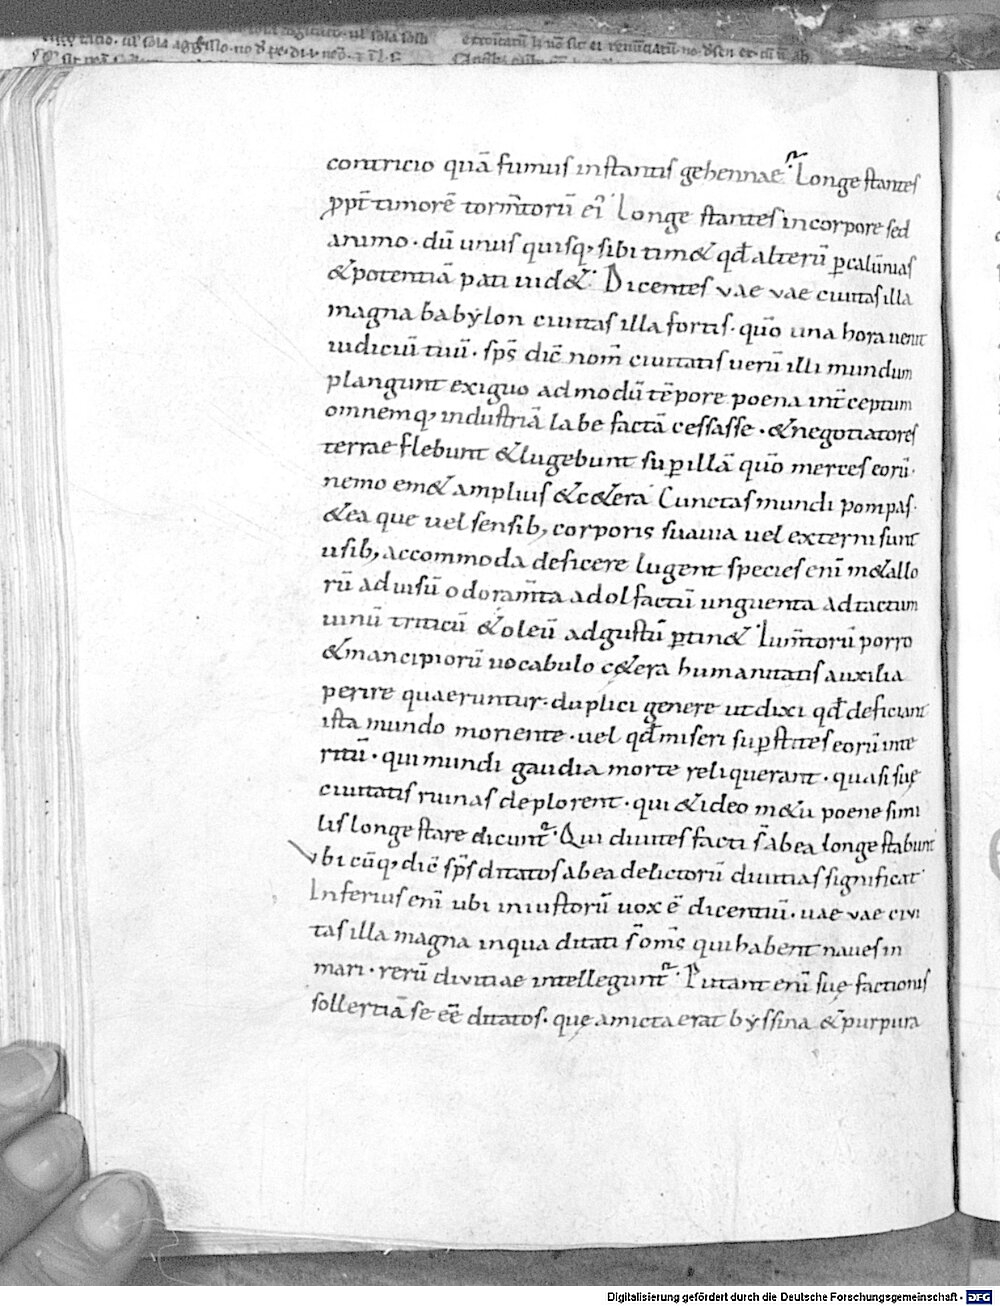 contricio quā fumus instantis gehennae. Longe stantes
ppt̄ timorē torm̄torū eī Longe stantes in corpore sed
animo · dū unus quisq; sibi tim& qđ alterū p calūnias
& potentiā pati uid& Dicentes vae vae ciuitas illa
magna babẏlon ciuitas illa fortis · quō una hora uenit
iudiciū tuū · sp̄s dic̄ nom̄ ciuitatis uerū illi mundum
plangunt exiguo admodū tēpore poena int̄ceptum
omnemq; industriā labefactā cessasse · & negotiatores
terrae flebunt & lugebunt sup illā quō merces eorū ·
nemo em& amplius & c&era Cunctas mundi pompas ·
& ea que uel sensib; corporis suauia uel externi sunt
usib; accommoda deficere lugent species enī m&allo
rū ad uisū odoram̄ta ad olfactū unguenta ad tactum
uinū triticū & oleū ad gustū ptin& Ium̄torū porro
& mancipiorū uocabulo c&era humanitatis auxilia
perire quaeruntur · duplici genere ut dixi qđ deficiant
ista mundo moriente · uel qđ miseri sup stites eorū inte
ritū · qui mundi gaudia morte reliquerant · quasi suę
ciuitatis ruinas deplorent · qui & ideo m&u poene simi
lis longe stare dicunt᷑ · Qui diuites facti s̄ ab ea longe stabunt
Vbi cūq; dic̄ sp̄s ditatos ab ea delictorū diuitias significat
Inferius enī ubi iniustorū uox ē dicentiū · uae vae civi
tas illa magna in qua ditati s̄ om̄s qui habent naues in
mari · rerū divitiae intellegunt᷑ · Putant enī suę factionis
sollertiā se eē ditatos · que amicta erat bẏssina & purpura
Digitalisierung gefördert durch die Deutsche Forschungsgemeinschaft - DFG